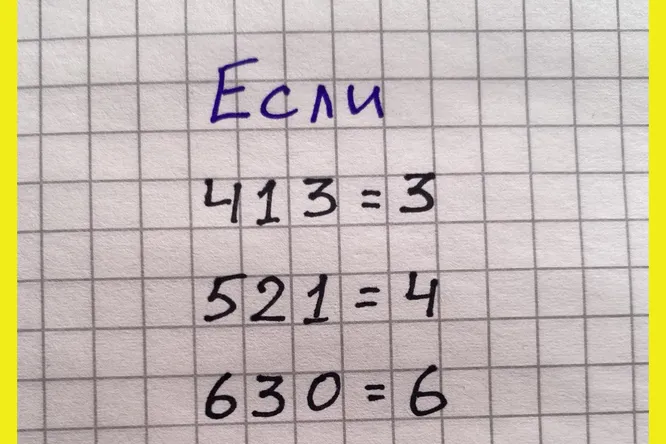 Если
413 = 3
521 = 4
630 = 6